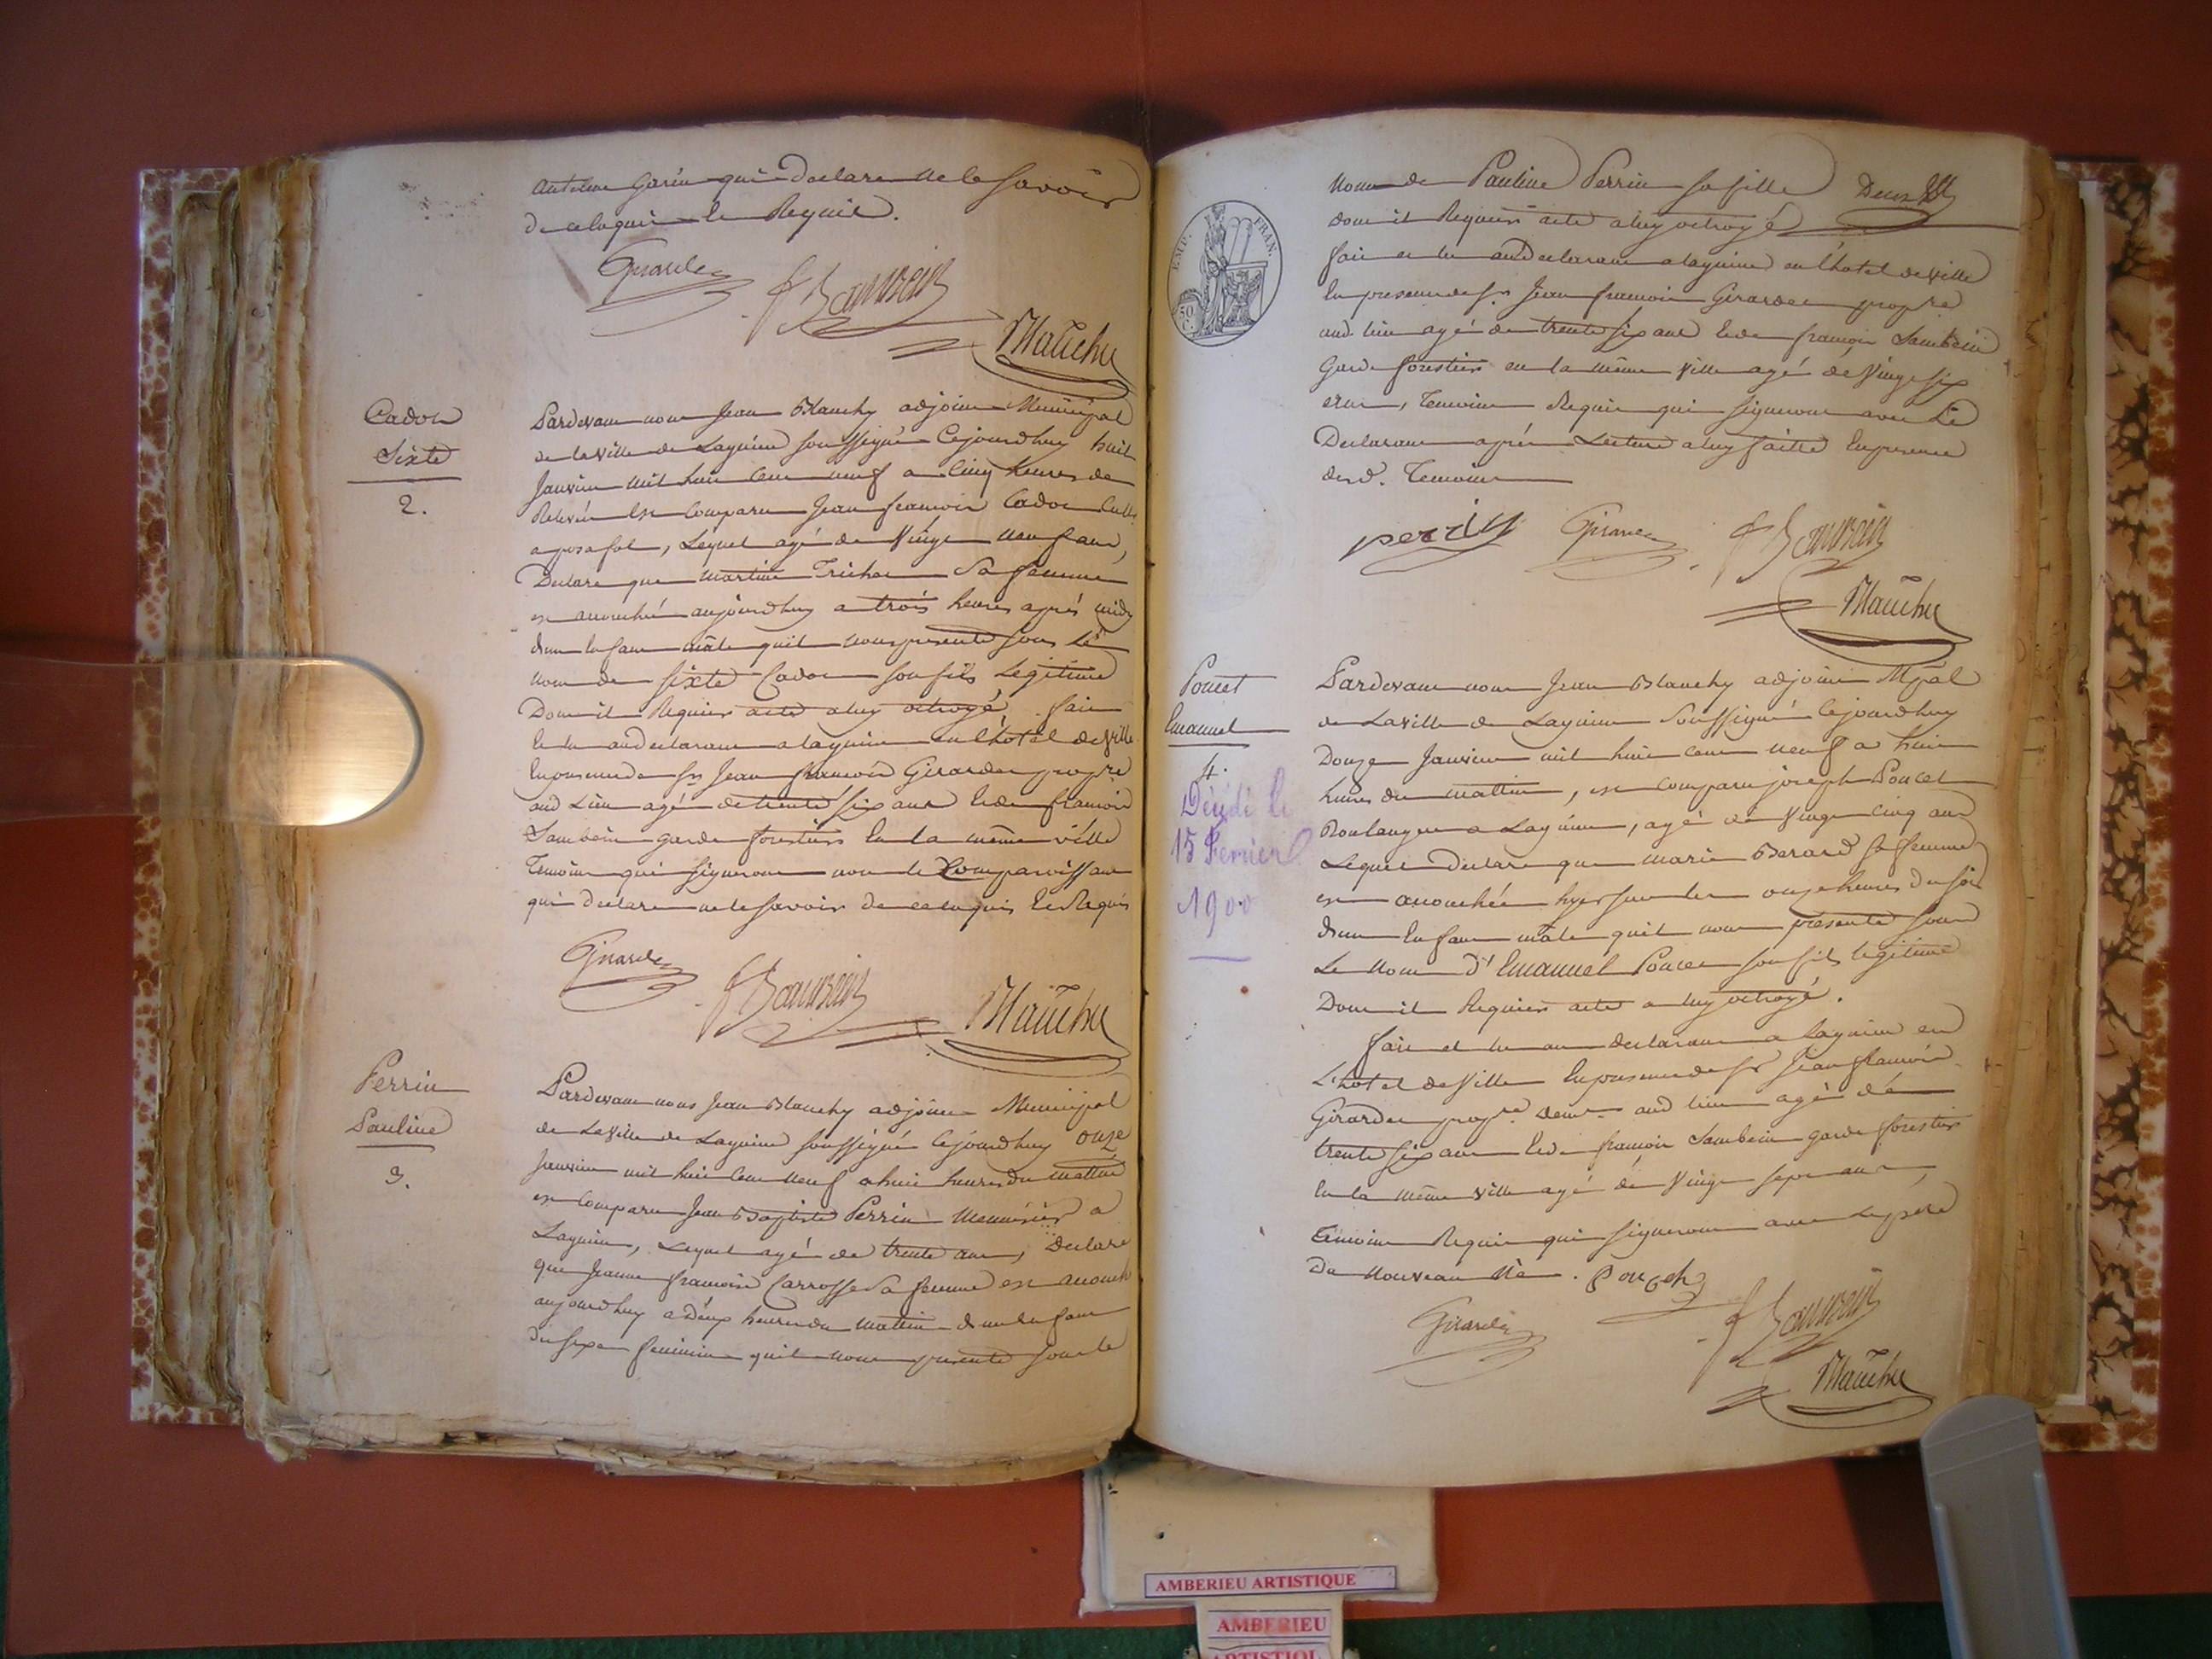 antelme Garin qui Declare ne le Savoir
De ce Enquis et Requis.
Girardet
Blanchy
Cadou
Sixte
2.
Pardevant nous Jean Blanchy adjoint Municipal
de la Ville de Lagnieu soussigné Cejourdhuy huit
Janvier mil huit Cent neuf a Cinq heures de
Relevée est Comparu Jean francois Cadou
Lequel agé de Vingt neuf ans,
Declare que Martine Trichon Sa femme
est accouchée aujourdhuy a trois heures après midy
dun Enfant mâle quil nous presente sous Le
nom de Sixte Cadou son fils Legitime
Dont il Requiert acte a luy octroyé. fait
et lu au declarant a lagnieu en l'hotel de Ville
En presence de Sr Jean francois Girardet propre
aud Lieu agé de trente six ans et de francois
Sambein garde forestier En la même ville
Temoins qui signeront non le Comparoissant
qui declare ne le savoir de ce enquis et Requis
Girardet
Blanchy
Perrin
Pauline
3.
Pardevant nous Jean Blanchy adjoint Municipal
de La Ville de Lagnieu soussigné Cejourdhuy onze
Janvier mil huit Cent neuf a huit heures du mattin
est Comparu Jean Baptiste Perrin Menuisier a
Lagnieu, Lequel agé de trente ans, Declare
que Jeanne francoise Carrosse Sa femme est accouché
aujourdhuy a Deux heures du mattin d'un Enfant
du sexe feminin quil nous presente sous le
nom de Pauline Perrin sa fille Deux
dont il Requiert acte a luy octroyé
EMP. FRAN.
50 C.
fait et lu au Declarant a lagnieu en l'hotel de Ville
En presence de Sr Jean francois Girardet propre
aud. lieu agé de trente six ans et de françois Sambein
Garde forestier en la même Ville agé de Vingt six
ans, Temoins Requis qui signeront avec Le
Declarant après Lecture a luy faitte En presence
desd. Temoins
perrin Girardet
Blanchy
Poncet
Emanuel
4.
Décédé le
15 Fevrier
1900
Pardevant nous Jean Blanchy adjoint Mpal
de La Ville de Lagnieu Soussigné Cejourdhuy
Douze Janvier mil huit cent neuf a huit
heures du mattin, est comparu joseph Poncet
Boulanger a Lagnieu, agé de Vingt cinq ans
Lequel Declare que marie Berard sa femme
est accouchée hyer sur les onze heures du soir
dun Enfant mâle quil nous presente sous
Le nom d'Emanuel Poncet son fils légitime
Dont il Requiert acte a luy octroyé.
fait et lu au declarant a Lagnieu en
L'hotel de Ville En presence de Sr Jean francois
Girardet propre demt aud lieu agé de
trente six ans et de françois Sambein garde forestier
En la même ville agé de Vingt sept ans,
Témoins Requis qui signeront avec Le père
Du Nouveau Né. Poncet
Girardet
Blanchy
AMBERIEU ARTISTIQUE
AMBERIEU